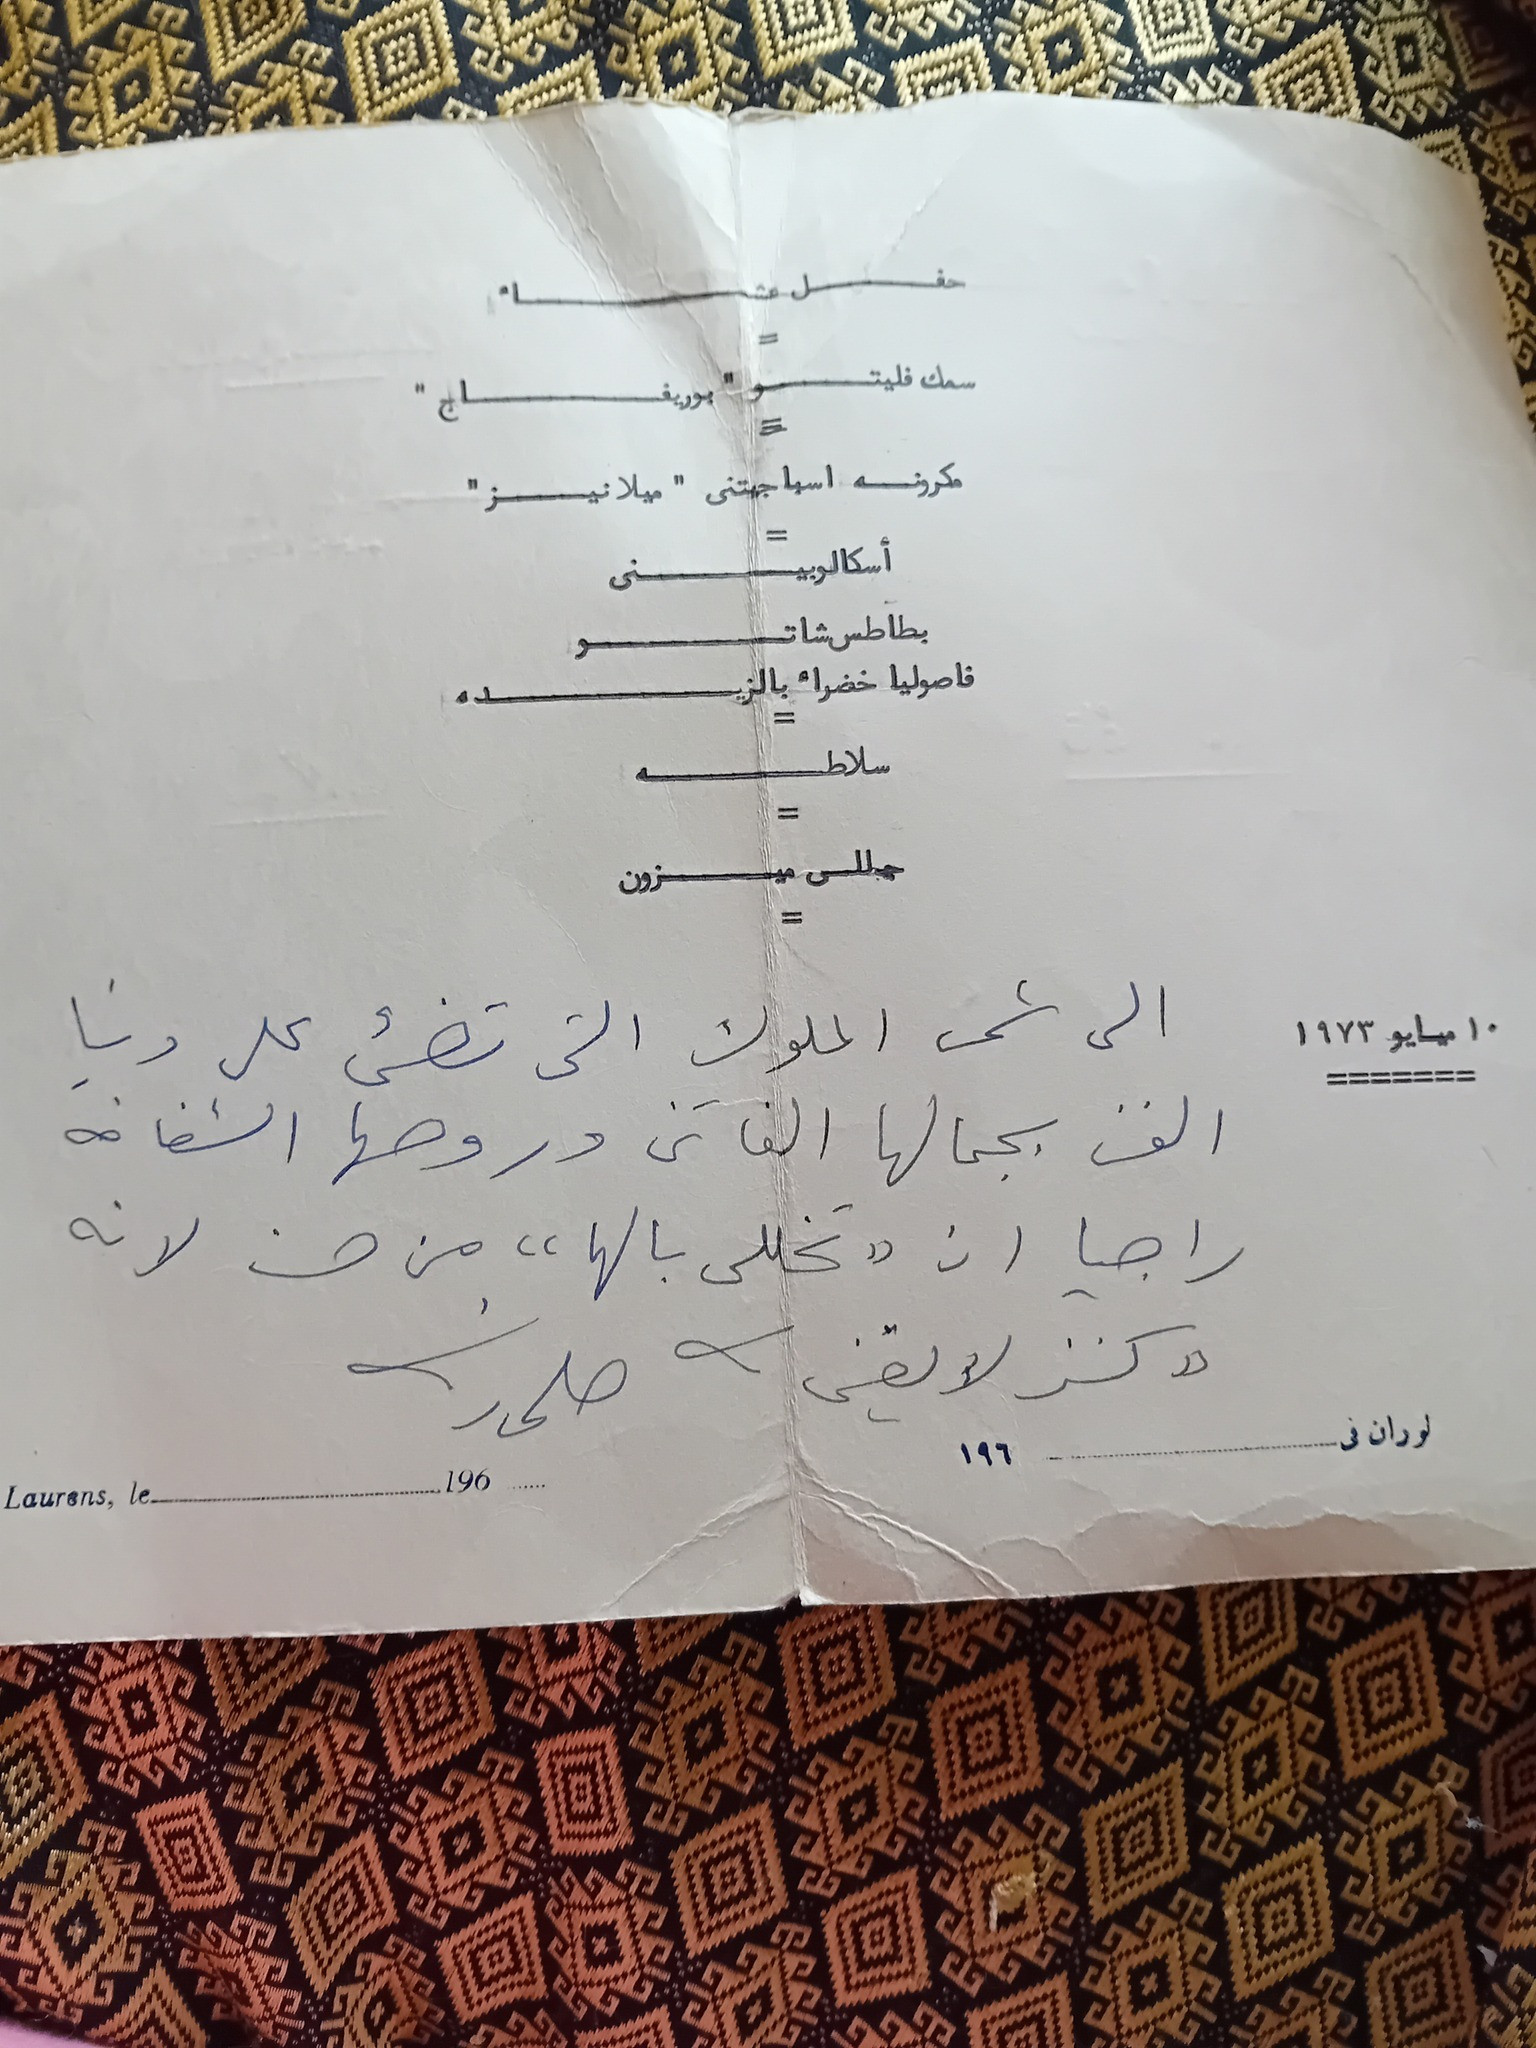 حفل عشاء
=
سمك فليتو " بوريفاج "
=
مكرونه اسباجيتنى " ميلانيز "
=
أسكالوبينى
بطاطس شاتو
فاصوليا خضراء بالزبده
=
سلاطه
=
جيللى ميزون
=
١٠ مايو ١٩٧٣
=======
الى شمس الملوك التى تضئ على دنيا
الفن بجمالها الفاتن وروحها الشفافه
راجيا ان « تخللى بالها » من لانه
« كنز لا يفنى »
لوران فى ١٩٦
Laurens, le 196